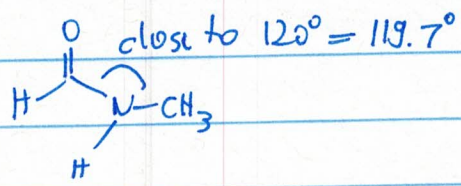 O
close to 120° = 119.7°
H N-CH₃
H